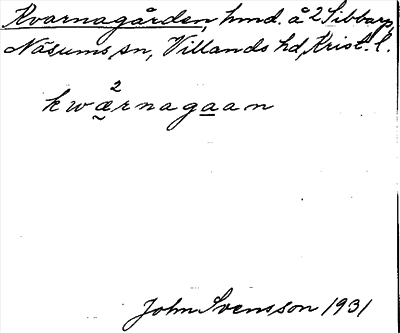 Kvarnagården, hmd. å 2 Sibbarp,
Näsums sn, Villands hd, Krist. l.
2
kwærnagaan
John Svensson 1931